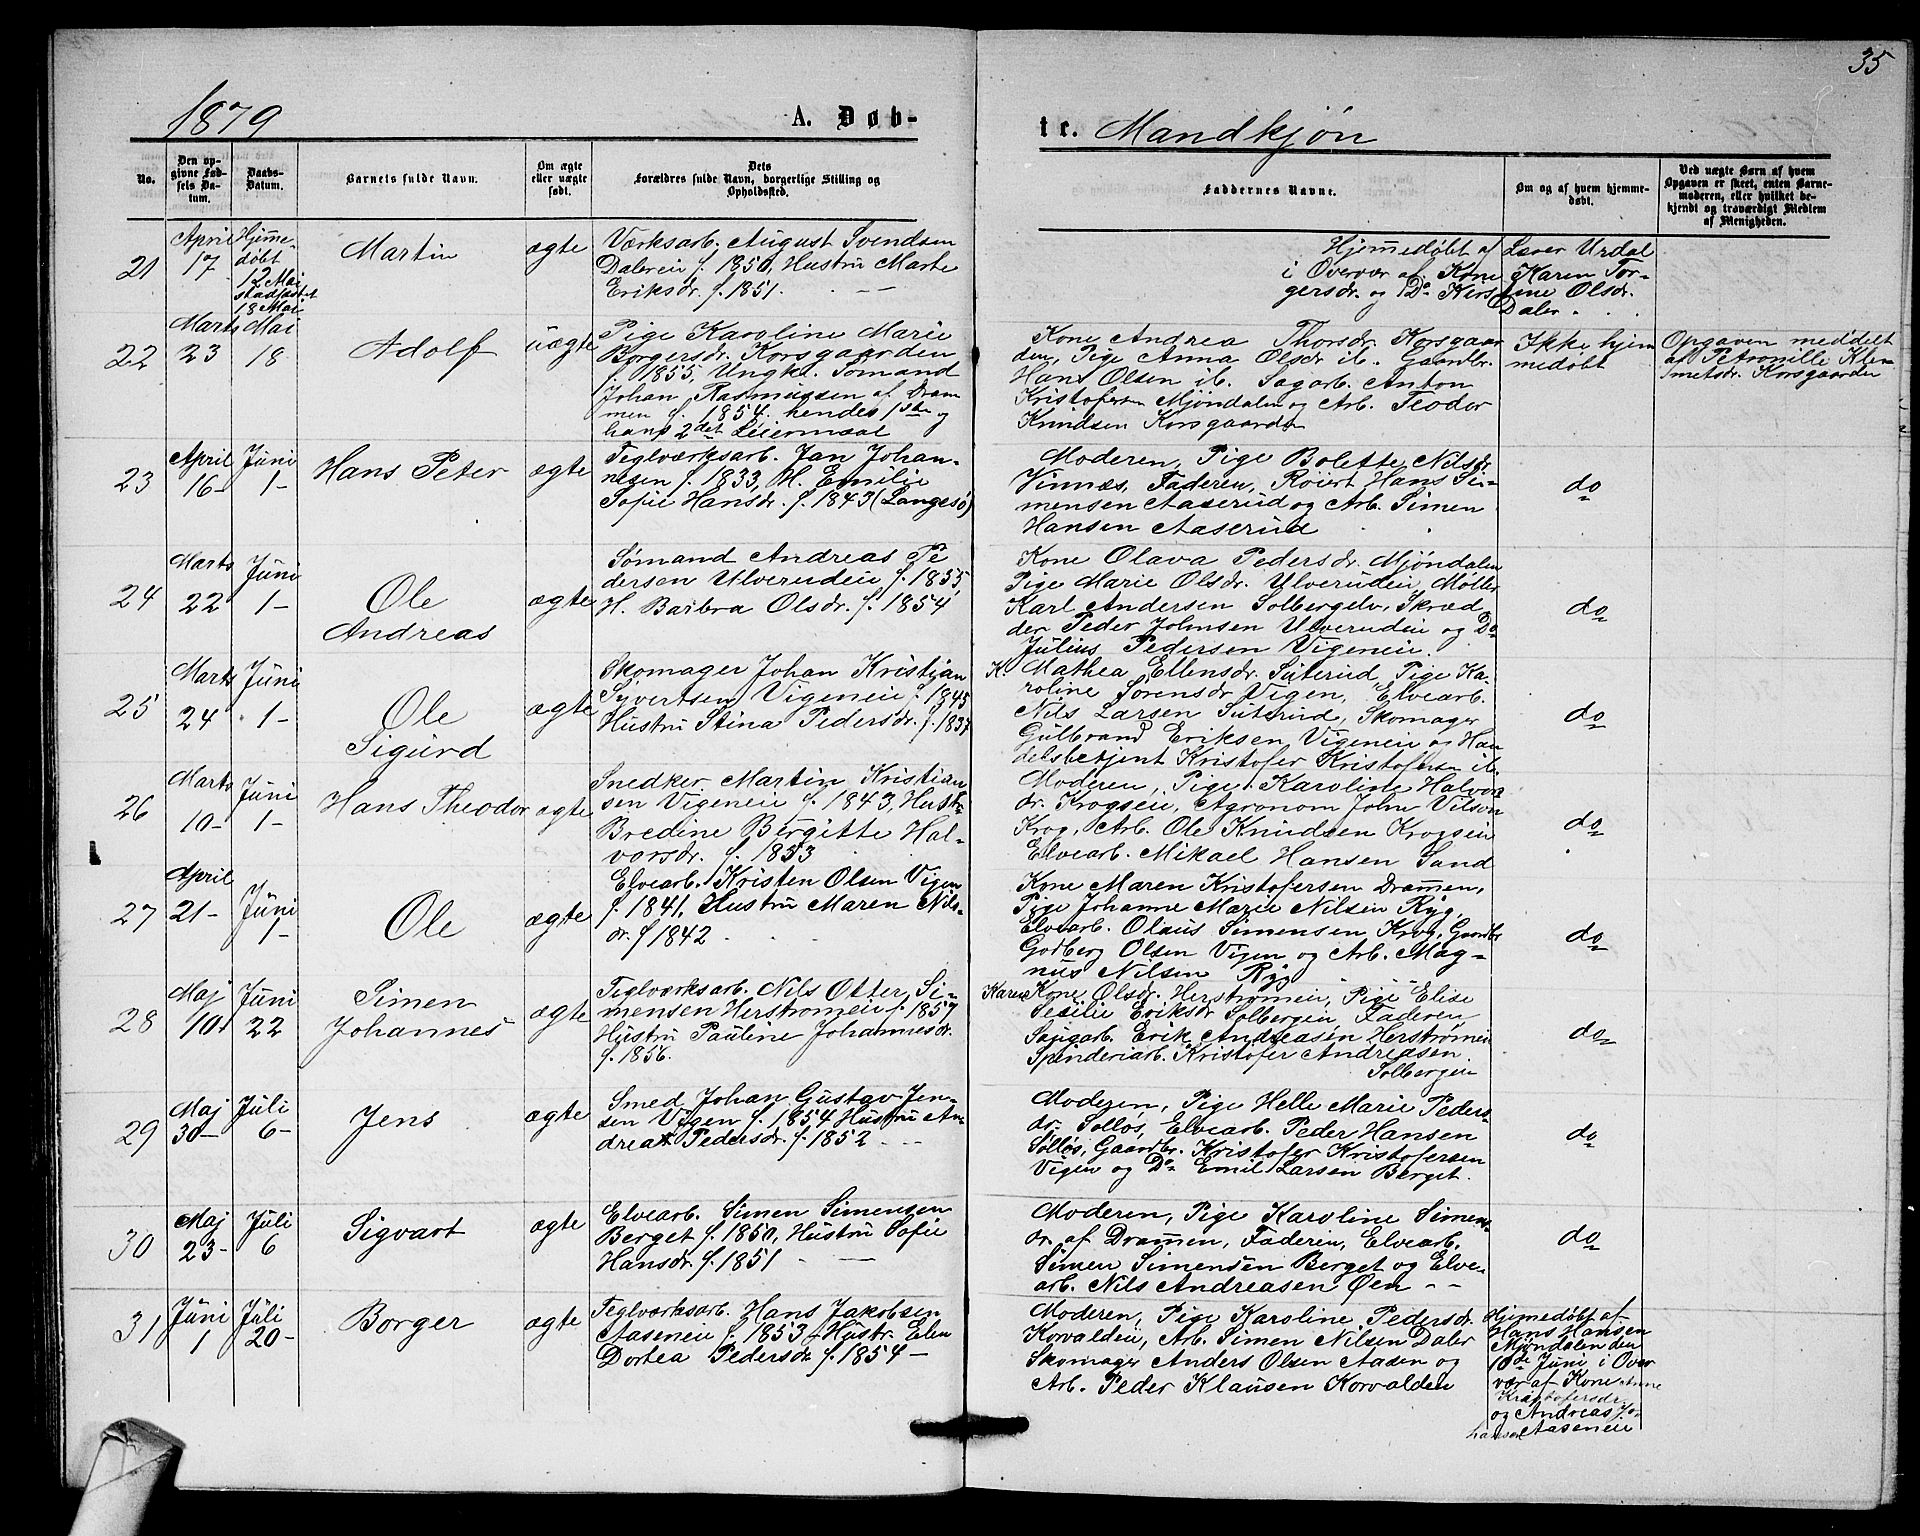 35
1879 A. Døb-
te. Mandkjøn
No.
Den op-
givne Fød-
sels Da-
tum.
Daabs-
Datum.
Barnets fulde Navn.
Om ægte
eller uægte
født.
Dets
Forældres fulde Navn, borgerlige Stilling og
Opholdssted.
Faddernes Navne.
Om og af hvem hjemme-
døbt.
Ved uægte Børn af hvem
Opgaven er skeet, enten Barne-
moderen, eller hvilket be-
kjendt og troværdigt Medlem
af Menigheden.
21
April
17
Hjemme-
døbt
12 Mai
stadfæstet
18 Mai
Martin
ægte
Værksarb. August Svendsen
Dalereie f. 1850, Hustru Marte
Eriksdr. f. 1851.
Hjemmedøbt af Laver Urdal
i Overvær af Kone Karen Tor-
gersdr. og Do Kirstine Olsdr.
Daler
22
Marts
23
Mai
18
Adolf
uægte
Pige Karoline Marie
Borgersdr. Korsgaarden
f. 1855, Ungk. Sømand
Johan Rasmussen af Dram
men f. 1854. hendes 1ste og
hans 2det Leiermaal
Kone Andrea Thorsdr. Korsgaar
den, Pige Anna Olsdr. ib. Gaardbr.
Hans Olsen ib. Sagarb. Anton
Kristofersen Mjøndalen og Arb. Teodor
Knudsen Korsgaarden
Ikke hjem
medøbt
Opgaven meddelt
af Petronille Kle-
metsdr. Korsgaarden
23
April
16-
Juni
1-
Hans Peter
ægte
Teglværksarb. Jan Johan-
nesen f. 1833, H. Emilie
Sofie Hansdr. f. 1843 (Langesø)
Moderen, Pige Bolette Nilsdr.
Vinnæs, Faderen, Røiert Hans Si-
mensen Aaserud og Arb. Simen
Hansen Aaserud
do
24
Marts
22
Juni
1-
Ole
Andreas
ægte
Sømand Andreas Pe
dersen Ulverudeie f. 1855,
H. Barbra Olsdr. f. 1854
Kone Olava Pedersdr. Mjøndalen
Pige Marie Olsdr. Ulverudeie, Møller
Karl Andersen Solbergelv, Skræd
der Peder Johnsen Ulverudeie og Do
Julius Pedersen Vigeneie.
do
25
Marts
24
Juni
1-
Ole
Sigurd
ægte
Skomager Johan Kristjan
Syvertsen Vigeneie f. 1845
Hustru Stina Pedersdr. f. 1837
K. Mathea Ellensdr. Suterud, Pige Ka-
roline Sørensdr. Vigen, Elvearb.
Nils Larsen Suterud, Skomager
Gulbrand Eriksen Vigeneie og Han
delsbetjent Kristofer Kristofersen ib.
do
26
Marts
10-
Juni
1-
Hans Theodor
ægte
Snedker Martin Kristian
sen Vigeneie f. 1843, Hustr.
Bredine Bergitte Hal-
vorsdr. f. 1853
Moderen, Pige Karoline Halvor
dr. Krogseie, Agronom John Vilson
Krog, Arb. Ole Knudsen Krogseie
Elvearb. Mikael Hansen Sand
do
27
April
21-
Juni
1-
Ole
ægte
Elvearb. Kristen Olsen Vigen
f. 1841, Hustru Maren Nils-
dr. f 1842
Kone Maren Kristofersen Dramen,
Pige Johanne Marie Nilsen Ryg,
Elvearb. Olaus Simensen Krog, Gaardbr
Godberg Olsen Vigen og Arb. Mag-
nus Nilsen Ryg
do
28
Maj
10-
Juni
22
Simen
Johannes
ægte
Teglværksarb. Nils Otter Si-
mensen Herstromeie f. 1857
Hustru Pauline Johannesdr.
f. 1856.
Karen Kone Olsdr. Herstrømeie, Pige Elise
Sesilie Eriksdr Solbergeie, Faderen
Sagarb. Erik Andreasen Herstrømeie
Spinderiarb. Kristofer Andreasen
Solbergeie
do
29
Maj
30-
Juli
6-
Jens
ægte
Smed Johan Gustav Jen-
sen Vigen f. 1854 Hustru An
drea Pedersdr. f. 1852
Moderen, Pige Helle Marie Peders-
dr. Solløs, Elvearb. Peder Hansen
Solløs, Gaardbr. Kristofer Kristofersen
Vigen og Do Emil Larsen Berget.
do
30
Maj
23-
Juli
6
Sigvart
ægte
Elvearb. Simen Simensen
Berget f. 1850, Hustru Sofie
Hansdr. f. 1851
Moderen, Pige Karoline Simens-
dr. af Dramen, Faderen, Elvearb.
Simen Simensen Berget og Elve-
arb. Nils Andreasen Øen
do
31
Juni
1
Juli
20-
Borger
ægte
Teglværksarb. Hans Jakobsen
Aaseneie f. 1853 Hustr. Elen
Dortea Pedersdr f. 1854
Moderen, Pige Karoline Pedersdr.
Korvaldeie, Arb. Simen Nilsen Daler
Skomager Anders Olsen Aasen og
Arb. Peder Klausen Korvalden
Hjemmedøbt af
Hans Hansen
Mjøndalen den
10de Juni i Over
vær af Kone Anne
Kristofersdr
og Andreas Jo-
hansen Aaseneie